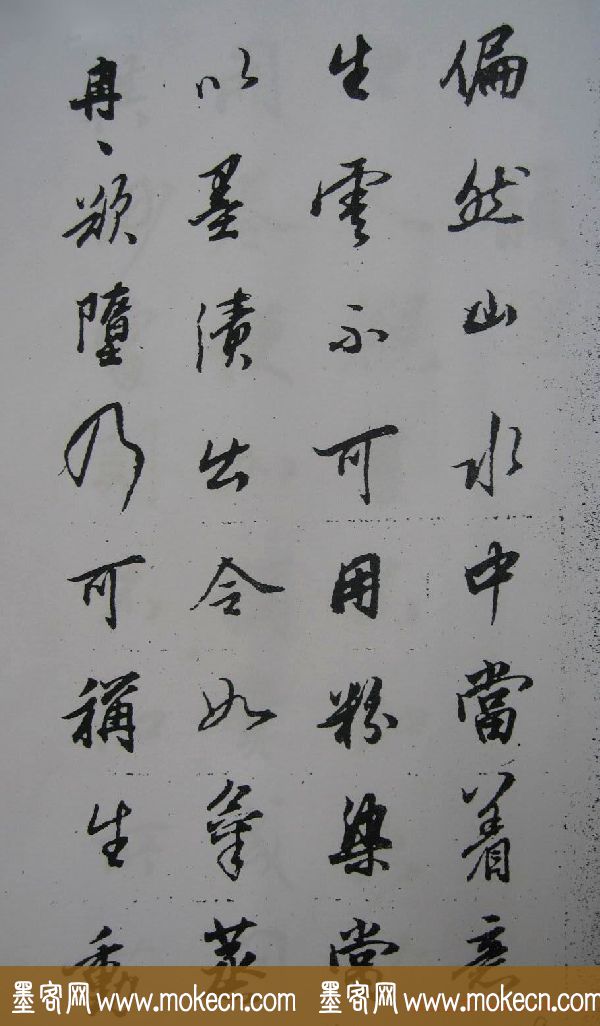 偏然山水中當着意
生雲不可用粉染當
以墨漬出令如氣蒸
冉〻欲墮乃可稱生動
墨客网 www.mokecn.com 墨客网 www.mokecn.com